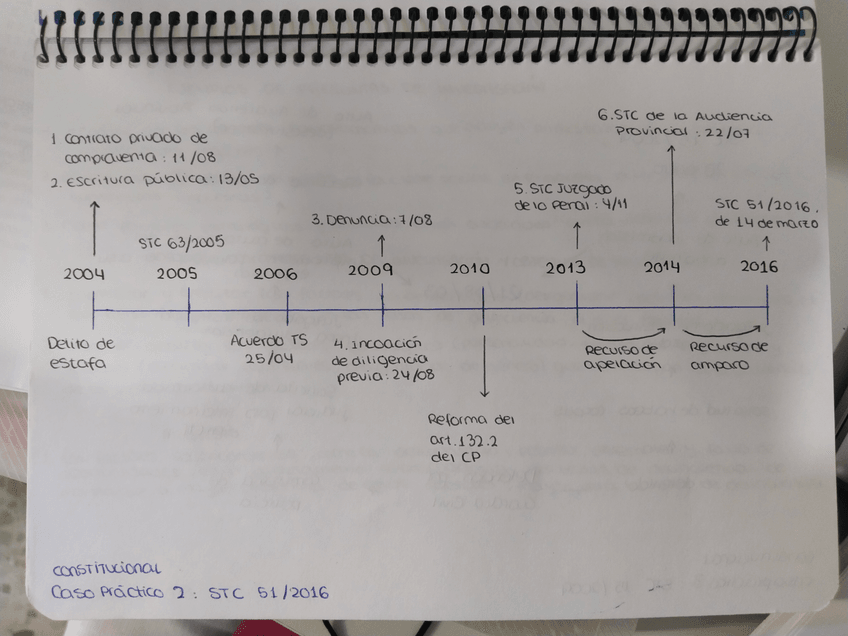 1 Contrato privado de
compraventa: 11/08
2. Escritura pública: 13/05
STC 63/2005
3. Denuncia: 7/08
5. STC Juzgado
de lo Penal: 4/11
6. STC de la Audiencia
Provincial: 22/07
STC 51/2016,
de 14 de marzo
2004 2005 2006 2009 2010 2013 2014 2016
Delito de
estafa
Acuerdo TS
25/04
4. Incoación
de diligencia
previa: 24/08
Reforma del
art. 132.2
del CP
Recurso de
apelación
Recurso de
amparo
Constitucional
Caso Práctico 2: STC 51/2016